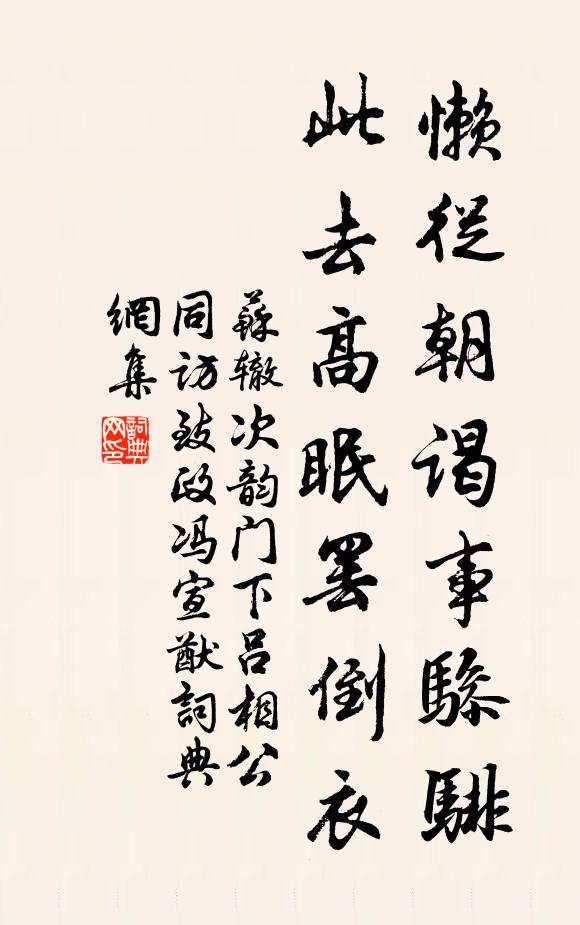 懒從朝谒事騑騑
此去高眠罢倒衣
蘇辙次韵门下吕相公
同访致政冯宣猷詞典
網集
詞典
网印